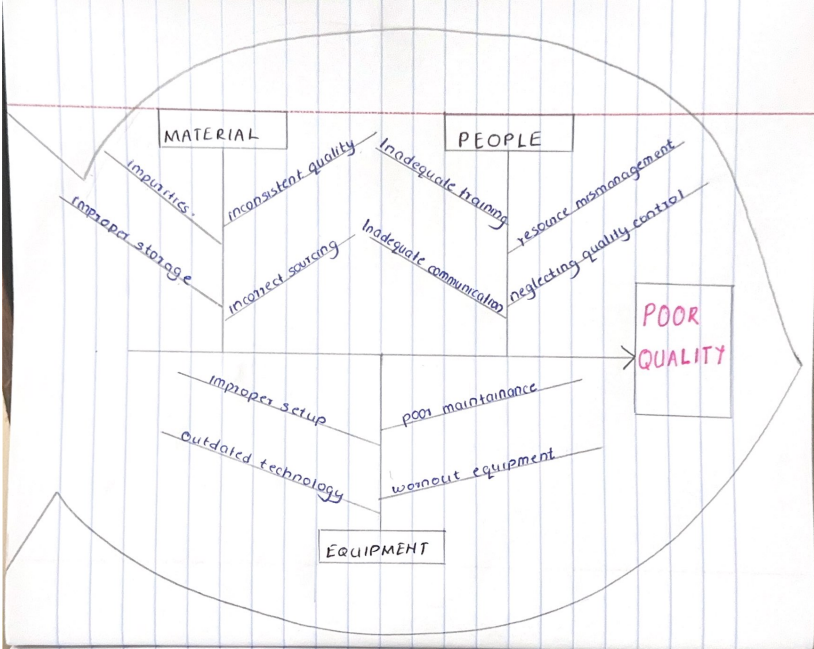 MATERIAL
PEOPLE
impurities.
improper storage
inconsistent quality
incorrect sourcing
Inadequate training
Inadequate communication
resource mismanagement
neglecting quality control
POOR
QUALITY
improper setup
Outdated technology
poor maintainance
wornout equipment
EQUIPMENT